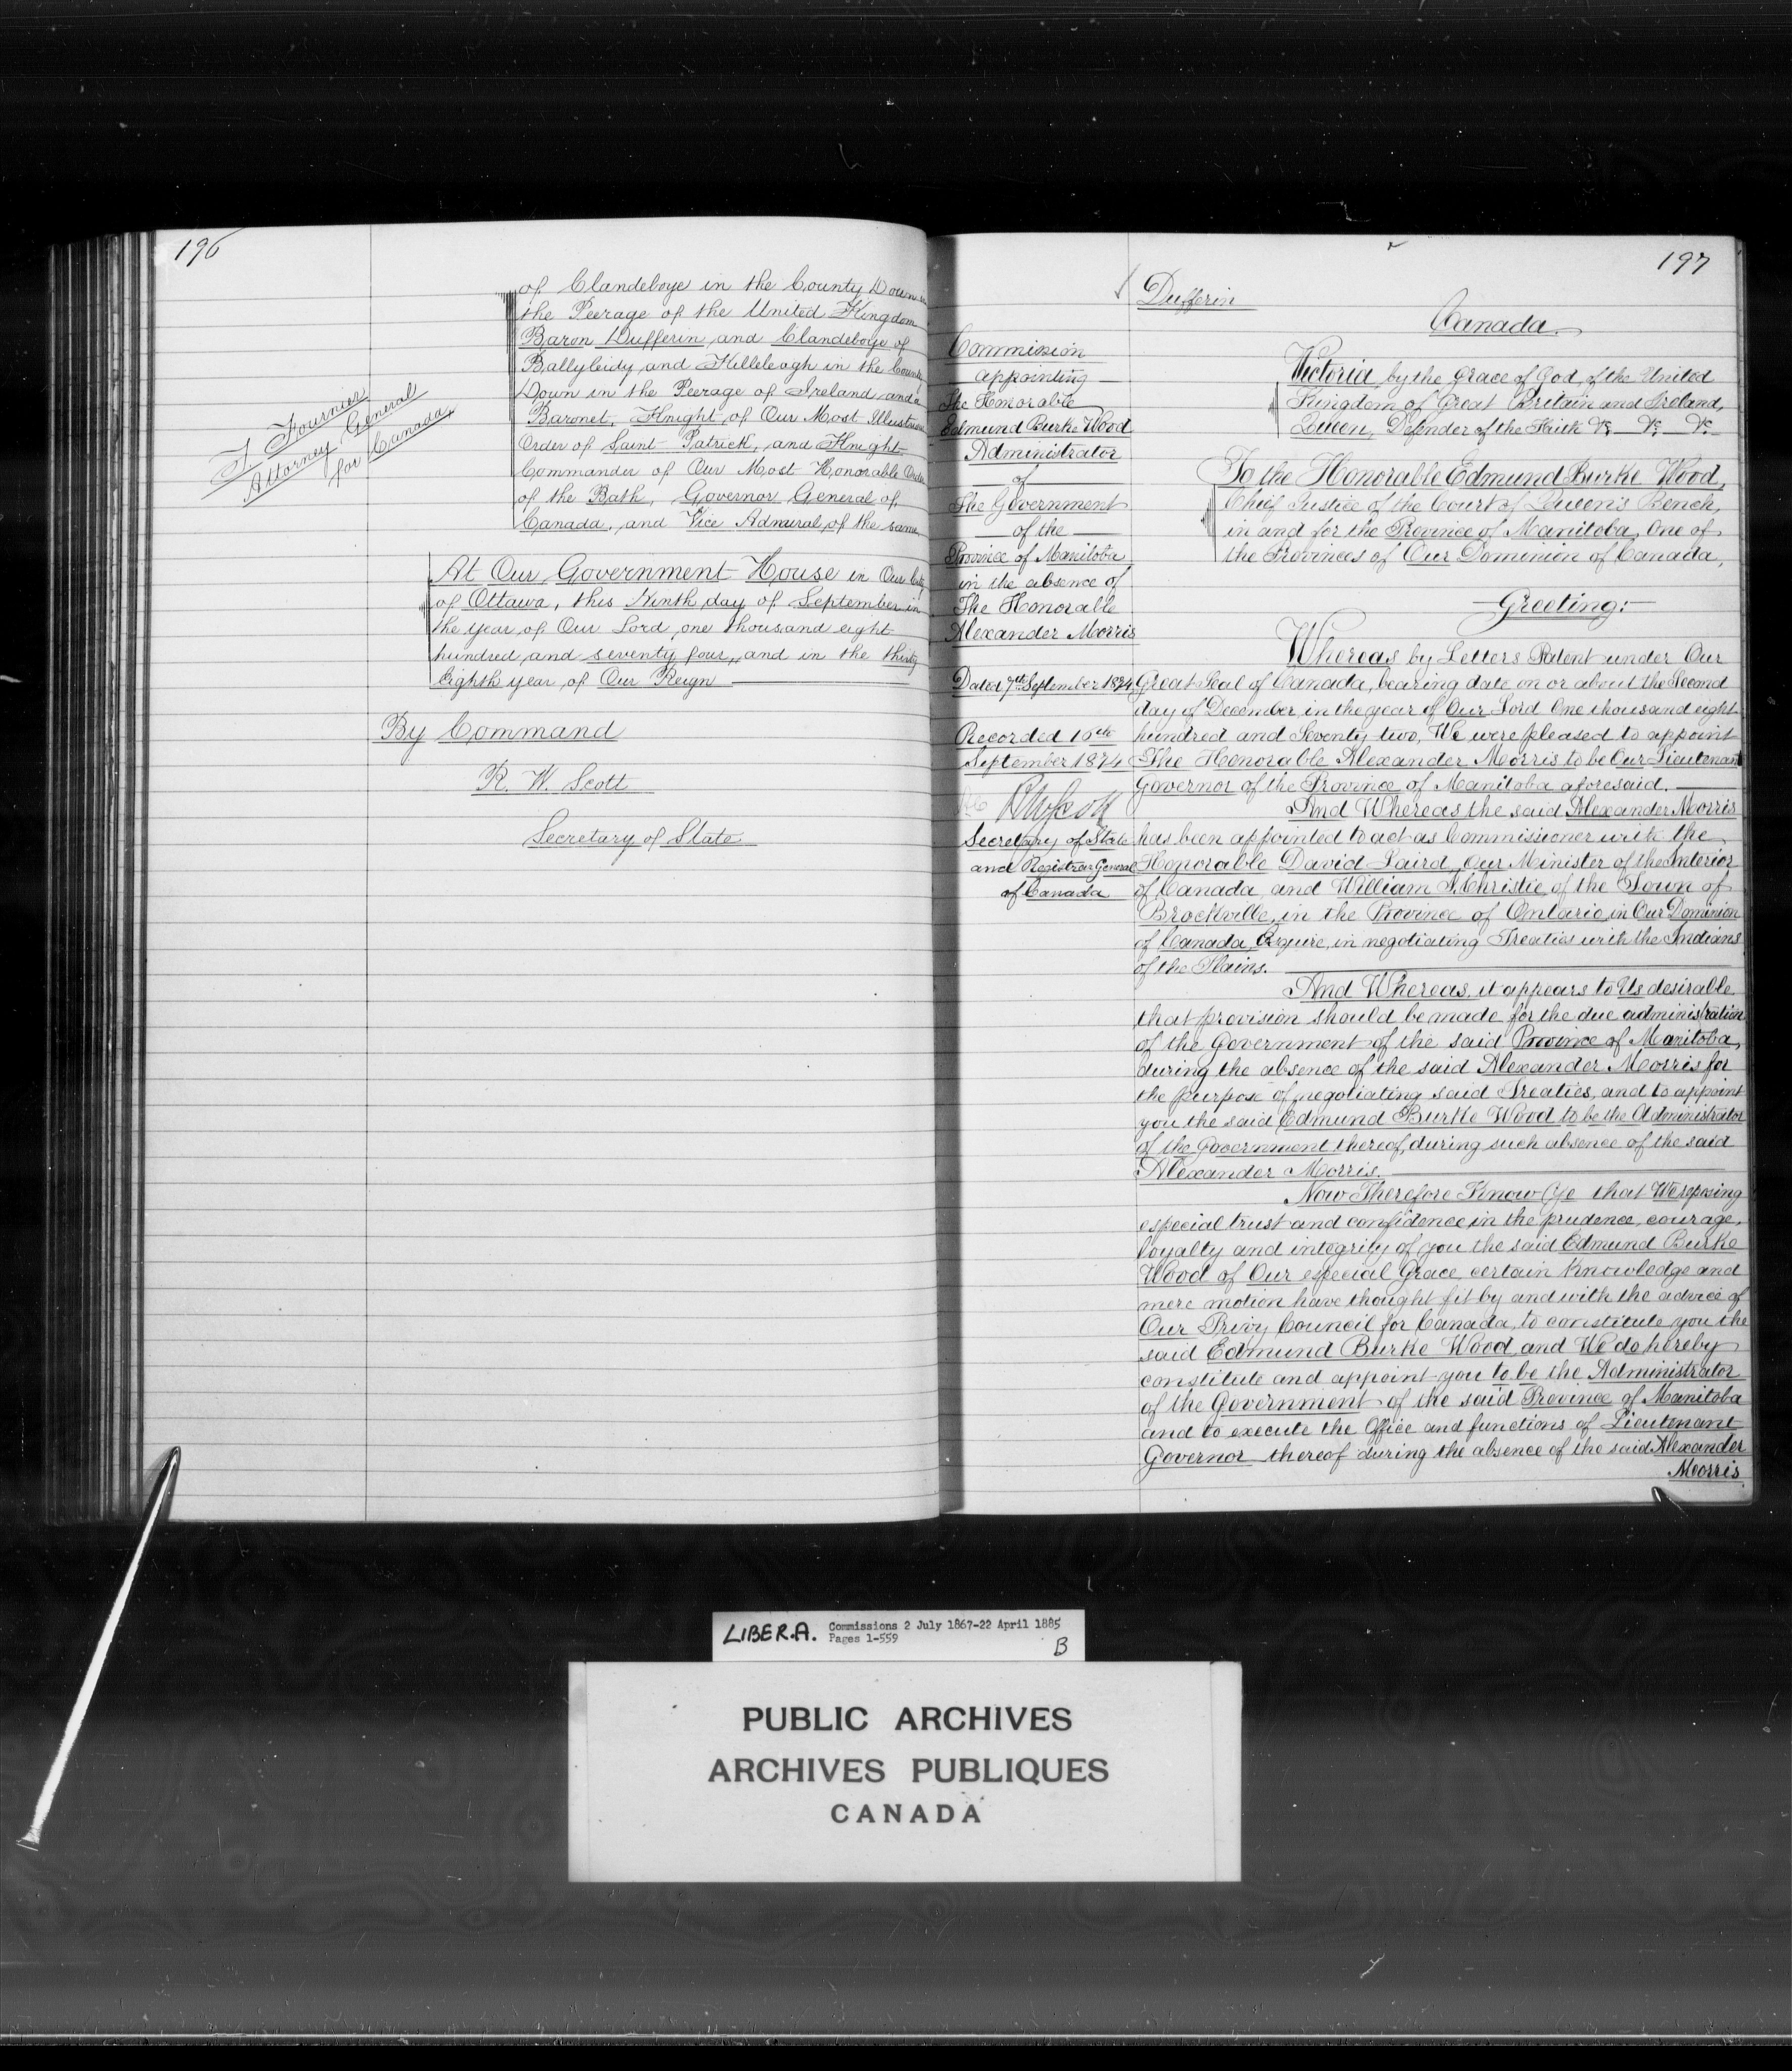 196
of Clandeboye in the County Down in
the Peerage of the United Kingdom
Baron Dufferin and Clandeboye of
Ballyleidy and Killeleagh in the County
Down in the Peerage of Ireland and a
Baronet, Knight of Our Most Illustrious
Order of Saint Patrick, and Knight
Commander of Our Most Honorable Order
of the Bath, Governor General of
Canada, and Vice Admiral of the same
T Fournier
Attorney General
for Canada
At Our Government House in Our City
of Ottawa, this Ninth day of September in
the year of Our Lord one thousand eight
hundred and seventy four, and in the thirty
Eighth year of Our Reign
By Command
R. W. Scott
Secretary of State
197
Dufferin
Canada.
Commission
appointing
The Honorable
Edmund Burke Wood
Administrator
of
The Government
of the
Province of Manitoba
in the absence of
The Honorable
Alexander Morris
Dated 7th September 1874
Recorded 16th
September 1874
RWScott
Secretary of State
and Registrar General
of Canada
Victoria by the Grace of God, of the United
Kingdom of Great Britain and Ireland,
Queen, Defender of the Faith &c &c &c
To the Honorable Edmund Burke Wood,
Chief Justice of the Court of Queen's Bench,
in and for the Province of Manitoba, One of
the Provinces of Our Dominion of Canada,
Greeting:
Whereas by Letters Patent under Our
Great Seal of Canada, bearing date on or about the Second
day of December in the year of Our Lord One thousand eight
hundred and Seventy two, We were pleased to appoint
The Honorable Alexander Morris to be Our Lieutenant
Governor of the Province of Manitoba aforesaid.
And Whereas the said Alexander Morris
has been appointed to act as Commissioner with the
Honorable David Laird, Our Minister of the Interior
of Canada, and William J. Christie of the Town of
Brockville, in the Province of Ontario in Our Dominion
of Canada, Esquire, in negotiating Treaties with the Indians
of the Plains.
And Whereas, it appears to Us desirable
that provision should be made for the due administration
of the Government of the said Province of Manitoba,
during the absence of the said Alexander Morris for
the purpose of negotiating said Treaties, and to appoint
you the said Edmund Burke Wood to be the Administrator
of the Government thereof, during such absence of the said
Alexander Morris.
Now Therefore Know Ye that We reposing
especial trust and confidence in the prudence, courage,
loyalty and integrity of you the said Edmund Burke
Wood of Our especial Grace, certain Knowledge and
mere motion have thought fit by and with the advice of
Our Privy Council for Canada, to constitute you the
said Edmund Burke Wood and We do hereby
constitute and appoint you to be the Administrator
of the Government of the said Province of Manitoba
and to execute the Office and functions of Lieutenant
Governor thereof during the absence of the said Alexander
Morris
LIBER.A. Commissions 2 July 1867-22 April 1885
Pages 1-559
B
PUBLIC ARCHIVES
ARCHIVES PUBLIQUES
CANADA